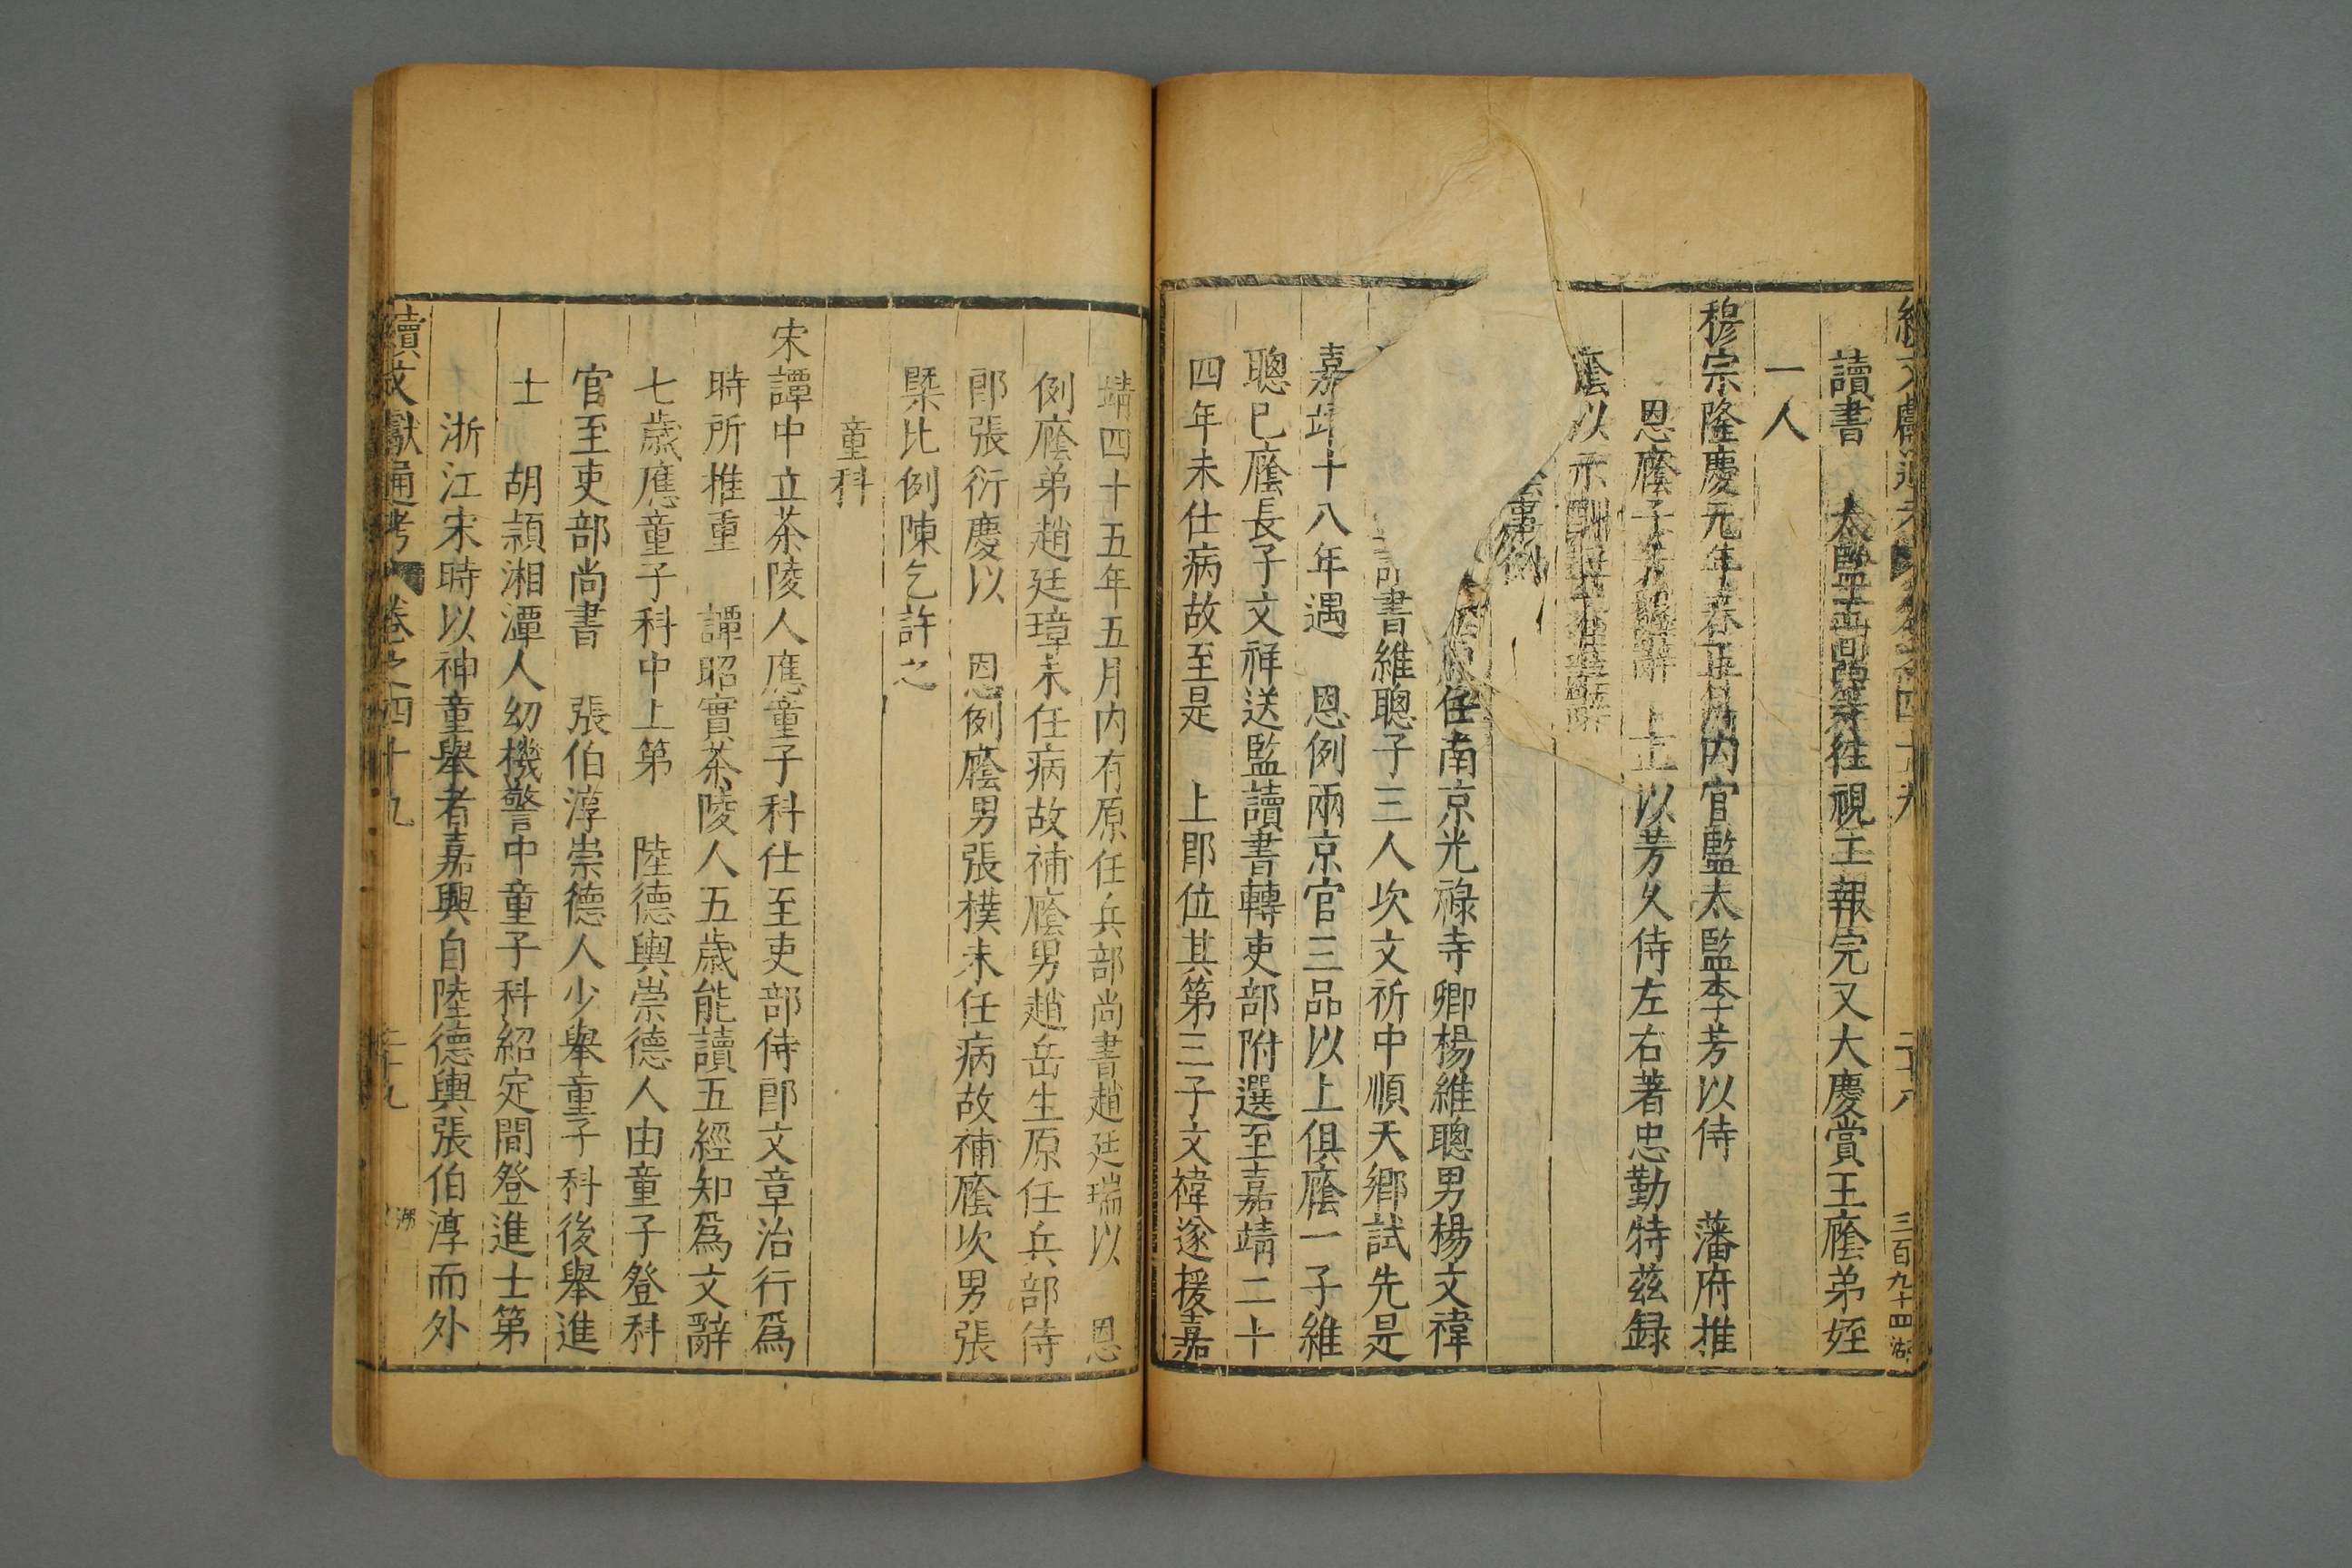 讀書 太監 往視王報完又大慶賞王廕弟姪
一人
穆宗隆慶元年春正月內官監太監李芳以侍 藩府推
恩廕子 上以芳久侍左右著忠勤特茲録
廕以示酬
例
任南京光祿寺卿楊維聰男楊文禕
書維聰子三人次文祈中順天鄉試先是
嘉靖十八年遇 恩例兩京官三品以上俱廕一子維
聰已廕長子文祥送監讀書轉吏部附選至嘉靖二十
四年未仕病故至是 上卽位其第三子文禕遂援嘉
三百九十四 湖
靖四十五年五月內有原任兵部尚書趙廷瑞以 恩
例廕弟趙廷璋未任病故補廕男趙岳生原任兵部侍
郎張衍慶以 恩例廕男張樸未任病故補廕次男張
㮣比例陳乞許之
童科
宋譚中立茶陵人應童子科仕至吏部侍郎文章治行爲
時所推重 譚昭實茶陵人五歲能讀五經知爲文辭
七歲應童子科中上第 陸德輿崇德人由童子登科
官至吏部尚書 張伯淳崇德人少舉童子科後舉進
士 胡頴湘潭人幼機警中童子科紹定間登進士第
浙江宋時以神童舉者嘉興自陸德輿張伯淳而外
續文獻通考 卷之四十九 三十九